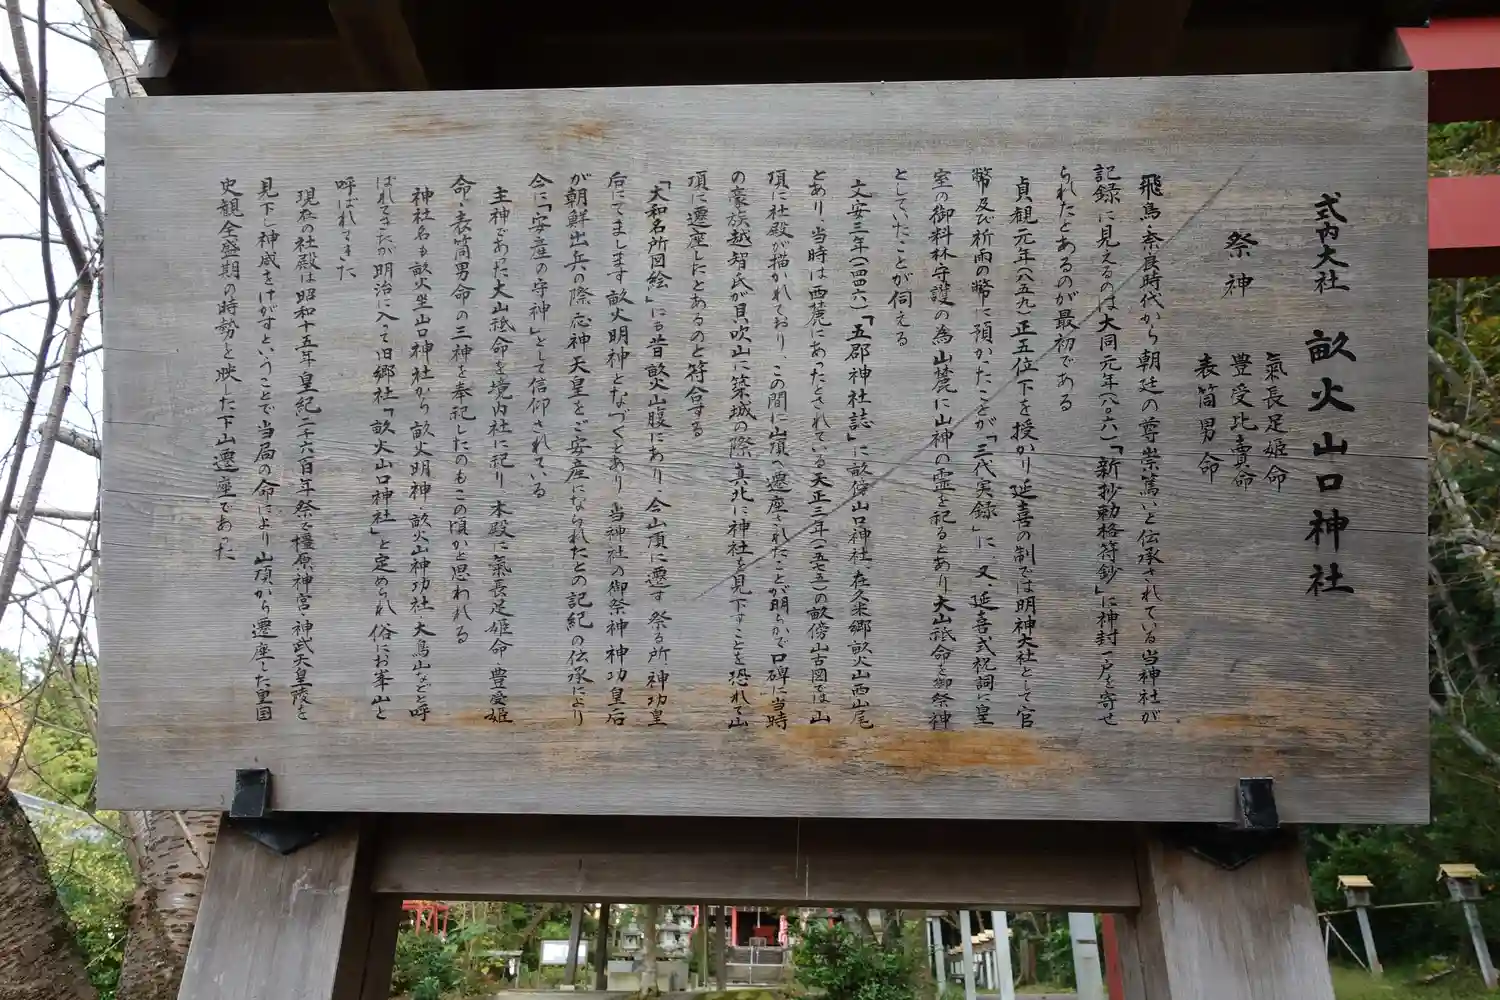 式内大社 畝火山口神社
祭神
氣長足姫命
豊受比賣命
表筒男命
飛鳥・奈良時代から朝廷の尊崇篤いと伝承されている当神社が
記録に見えるのは大同元年(八〇六)「新抄勅格符鈔」に神封一戸を寄せ
られたとあるのが最初である
貞観元年(八五九)正五位下を授かり延喜の制では明神大社として官
幣及び祈雨の幣に預かったことが「三代実録」に、又、延喜式祝詞に皇
室の御料林守護の為山麓に山神の霊を祀るとあり大山祗命を御祭神
としていたことが伺える
文安三年(一四四六)「五郡神社誌」に畝傍山口神社、在久米郷畝火山西山尾
とあり、当時は西麓にあったとされている天正三年(一五七五)の畝傍山古図では山
頂に社殿が描かれており、この間に山頂へ遷座されたことが明らかで口碑に当時
の豪族越智氏が貝吹山に築城の際、真北に神社を見下すことを恐れて山
頂に遷座したとあるのと符合する
「大和名所図絵」にも昔畝火山腹にあり、今山頂に遷す 祭る所、神功皇
后にてまします 畝火明神となづくとあり 当神社の御祭神 神功皇后
が朝鮮出兵の際、応神天皇をご安産になられたとの記紀の伝承により
今に「安産の守神」として信仰されている
主神であった大山祗命を境内社に祀り 本殿に氣長足姫命・豊受姫
命・表筒男命の三神を奉祀したのもこの頃かと思われる
神社名も畝火坐山口神社から畝火明神・畝火山神功社・大鳥山などと呼
ばれてきたが明治に入って旧郷社「畝火山口神社」と定められ俗にお峯山と
呼ばれてきた
現在の社殿は昭和十五年皇紀二千六百年祭で橿原神宮・神武天皇陵を
見下し神威をけがすということで当局の命により山頂から遷座した皇国
史観全盛期の時勢を映した下山遷座であった